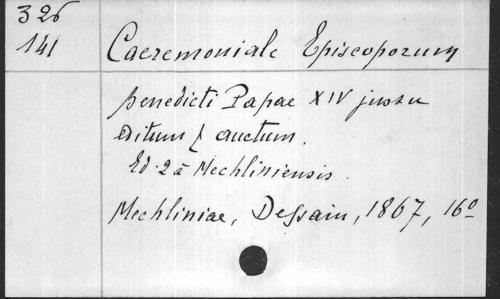 326
141
Caeremoniale Episcoporum
Benedicti Papae XIV jussu
editum & auctum.
Ed. 2a Mechliniensis.
Mechliniae, Dessain, 1867, 16o